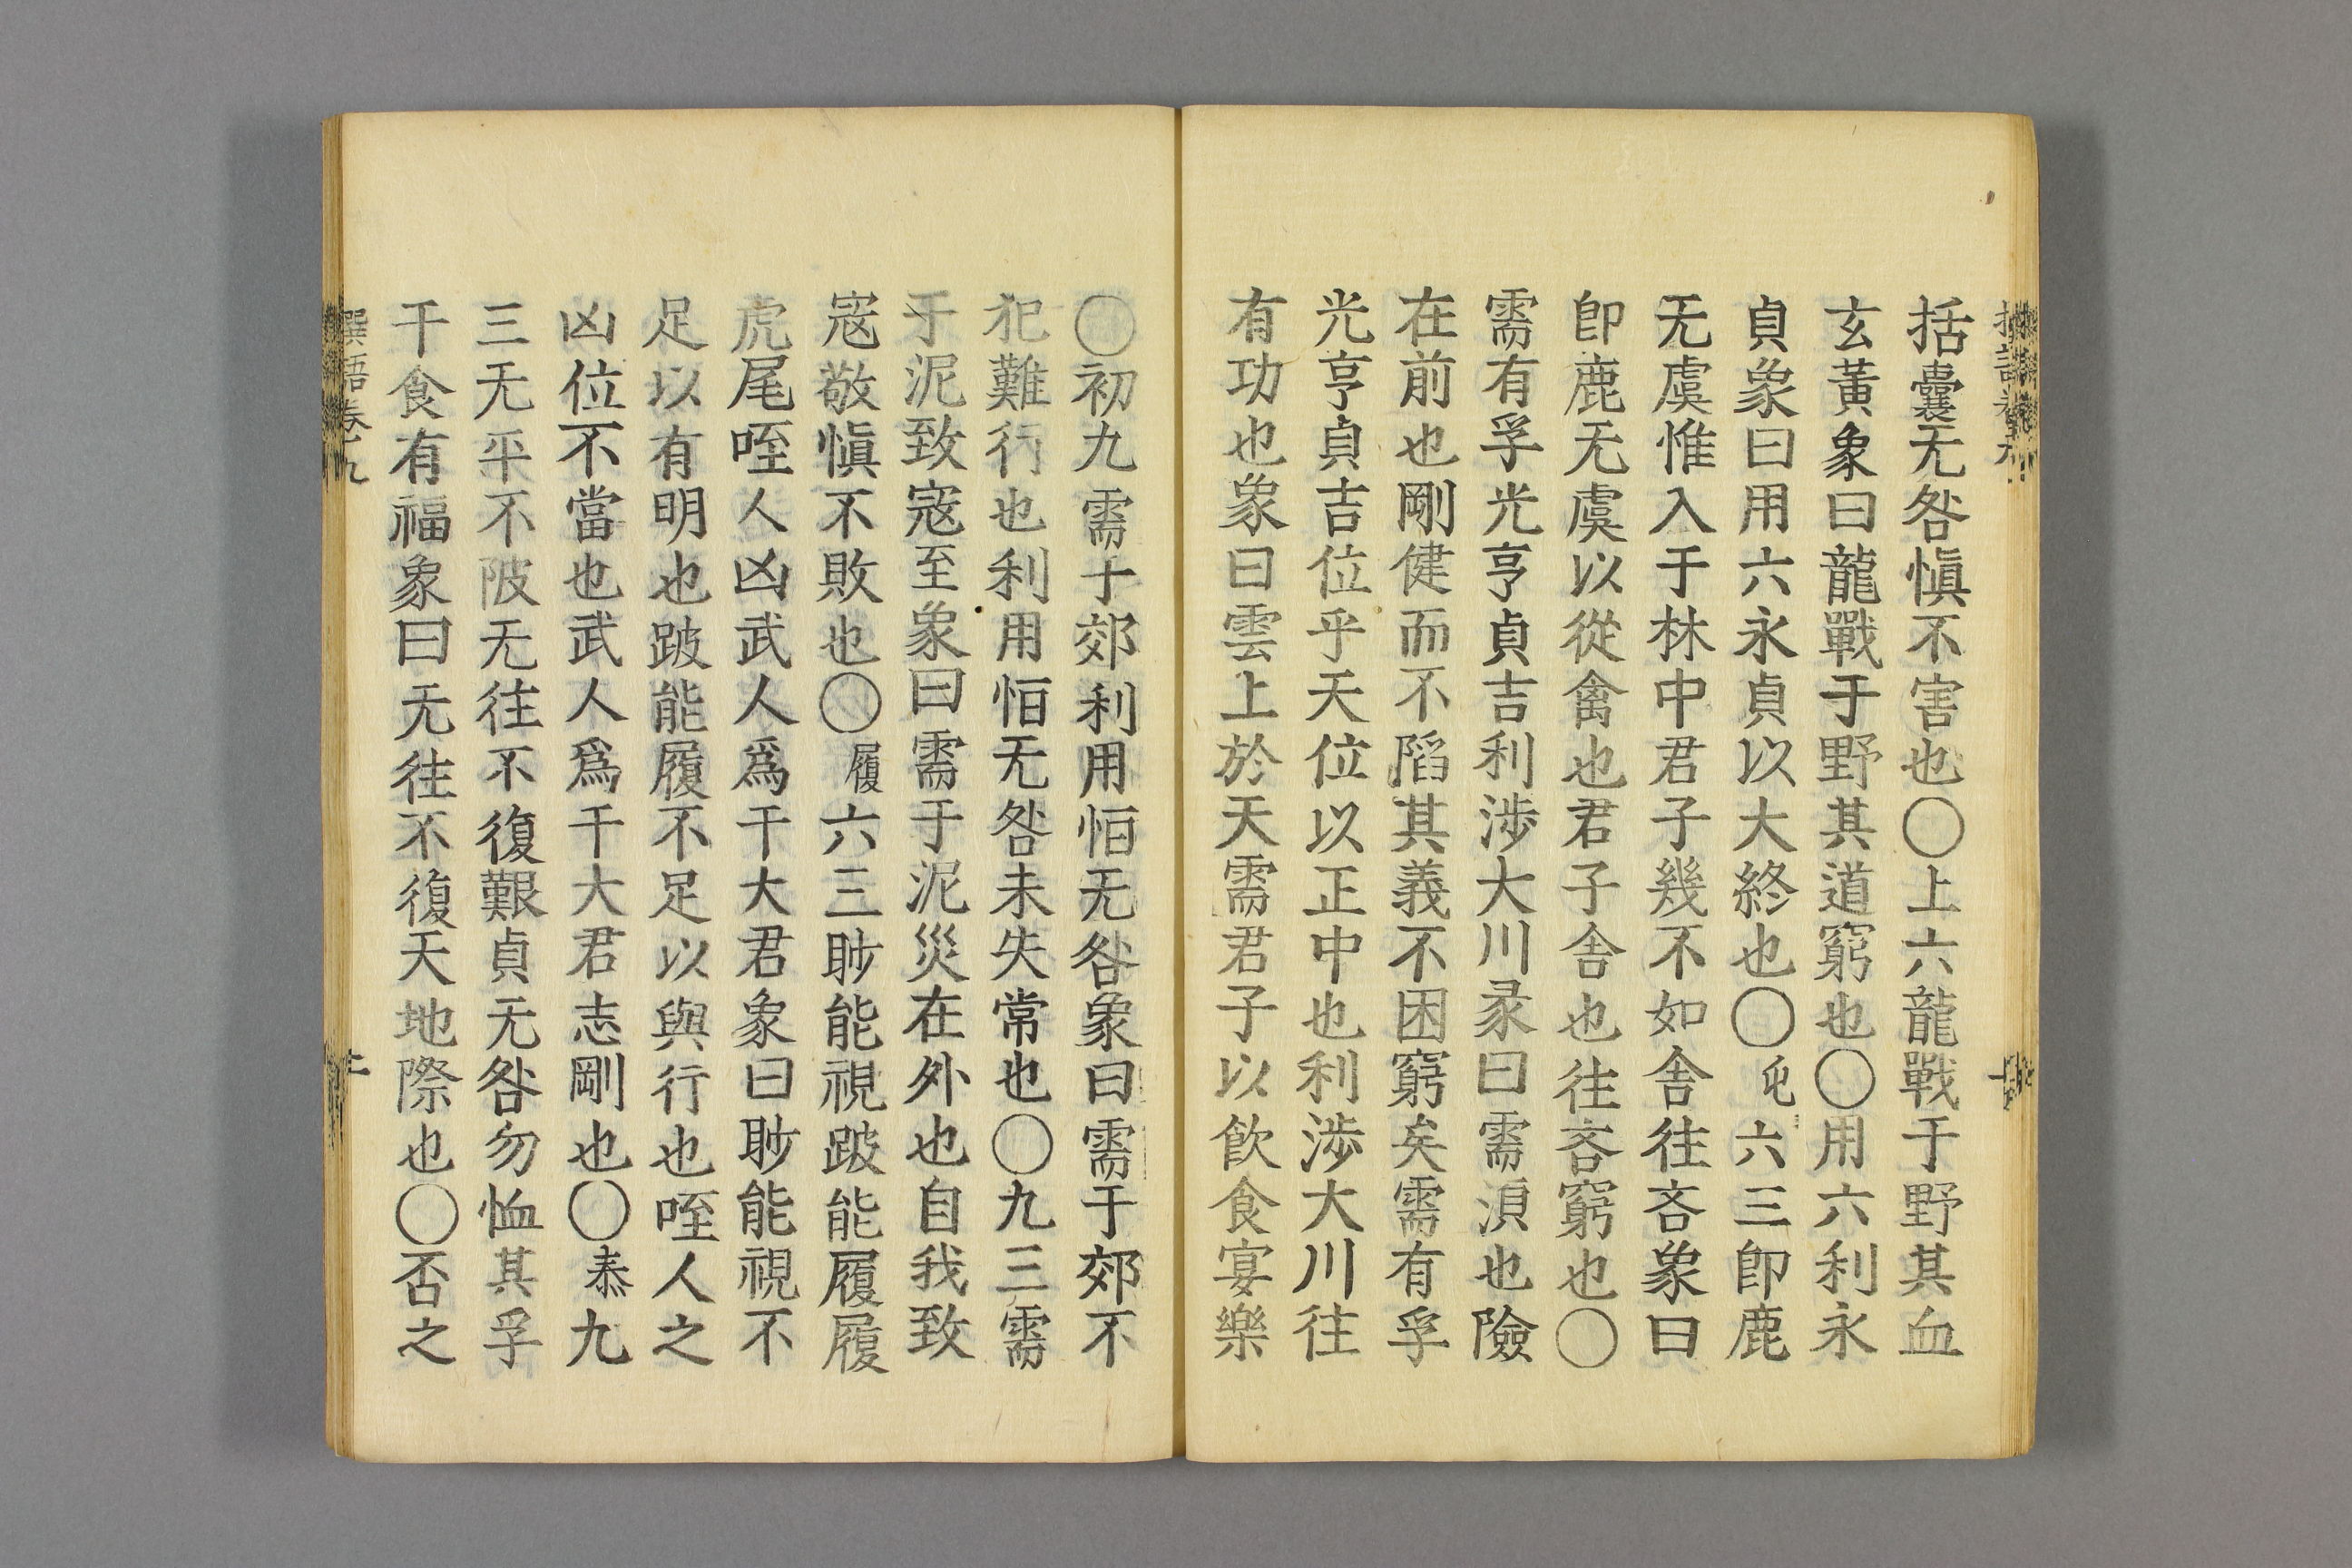 括囊无咎愼不害也○上六龍戰于野其血
玄黃象曰龍戰于野其道窮也○用六利永
貞象曰用六永貞以大終也○屯六三卽鹿
无虞惟入于林中君子幾不如舍往吝象曰
卽鹿无虞以從禽也君子舍也往吝窮也○
需有孚光亨貞吉利涉大川彖曰需湏也險
在前也剛健而不陷其義不困窮矣需有孚
光亨貞吉位乎天位以正中也利涉大川往
有功也象曰雲上於天需君子以飮食宴樂
○初九需于郊利用恒无咎象曰需于郊不
犯難行也利用恒无咎未失常也○九三需
于泥致寇至象曰需于泥災在外也自我致
寇敬愼不敗也○履六三眇能視跛能履履
虎尾咥人凶武人爲于大君象曰眇能視不
足以有明也跛能履不足以與行也咥人之
凶位不當也武人爲于大君志剛也○泰九
三无平不陂无往不復艱貞无咎勿恤其孚
于食有福象曰无往不復天地際也○否之
撰語卷九